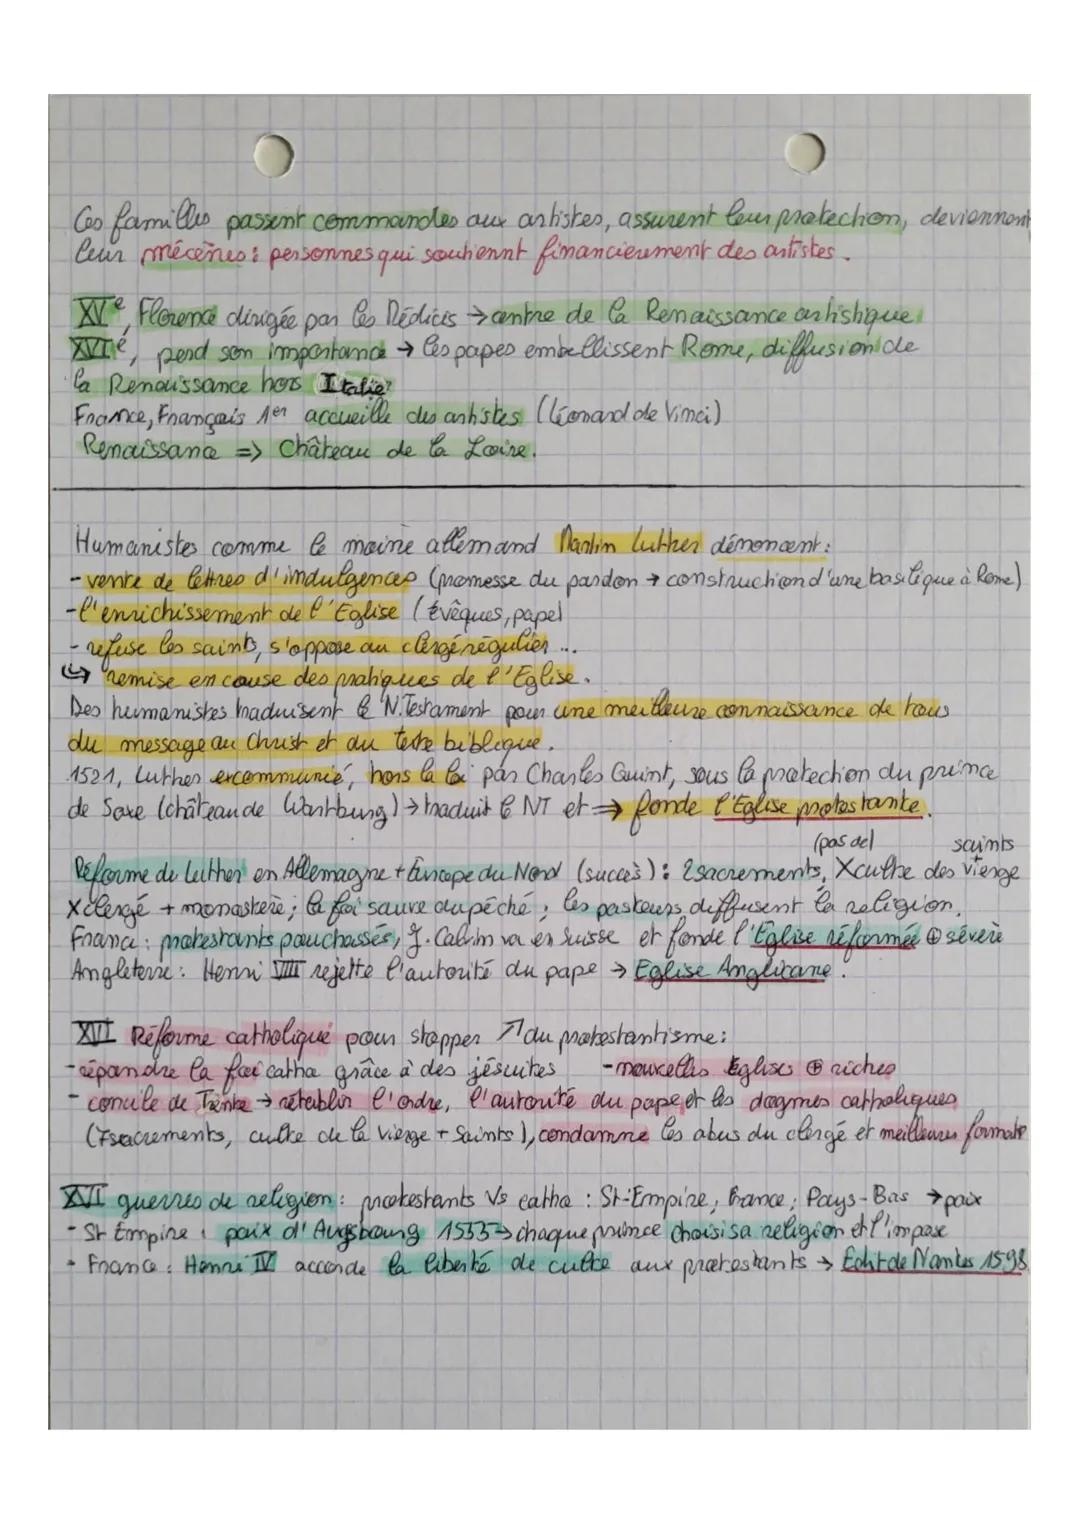 Ces familles passent commandes aux artistes, assurent leur protection, deviennent
leur mécènes : personnes qui soutiennent financièrement des artistes.
XVe, Florence dirigée par les Médicis → centre de la Renaissance artistique
XVIe, perd son importance → les papes embellissent Rome, diffusion de
la Renaissance hors Italie
France, Français 1er accueille des artistes (Léonard de Vinci)
Renaissance => Château de la Loire.
Humanistes comme le moine allemand Martin Luther dénoncent :
- vente de lettres d'indulgences (promesse du pardon → construction d'une basilique à Rome)
- l'enrichissement de l'Eglise (Évêques, pape)
- refuse les saints, s'oppose au clergé régulier ...
↳ remise en cause des pratiques de l'Eglise.
Des humanistes traduisent le N.Testament pour une meilleure connaissance de tous
du message du Christ et du texte biblique.
1521, Luther excommunié, hors la loi par Charles Quint, sous la protection du prince
de Saxe (château de Wartburg) → traduit le NT et ⇒ fonde l'Eglise protestante.
(pas de) saints
Réforme de Luther en Allemagne + Europe du Nord (succès) : 2 sacrements, X culte des vierge +
X clergé + monastère ; la foi sauve du péché ; les pasteurs diffusent la religion.
France : protestants pourchassés, J. Calvin va en Suisse et fonde l'Eglise réformée ⊕ sévère
Angleterre : Henri VIII rejette l'autorité du pape → Eglise Anglicane.
XVI Réforme catholique pour stopper ↗ du protestantisme :
- répandre la foi catho grâce à des jésuites - nouvelles Eglises ⊕ riches
- concile de Trente → rétablir l'ordre, l'autorité du pape et les dogmes catholiques
(7 sacrements, culte de la Vierge + Saints), condamne les abus du clergé et meilleures formate
XVI guerres de religion : protestants Vs catho : St-Empire, France, Pays-Bas → paix
- St Empire : paix d'Augsbourg 1555 → chaque prince choisi sa religion et l'impose
- France : Henri IV accorde la liberté de culte aux protestants → Edit de Nantes 1598